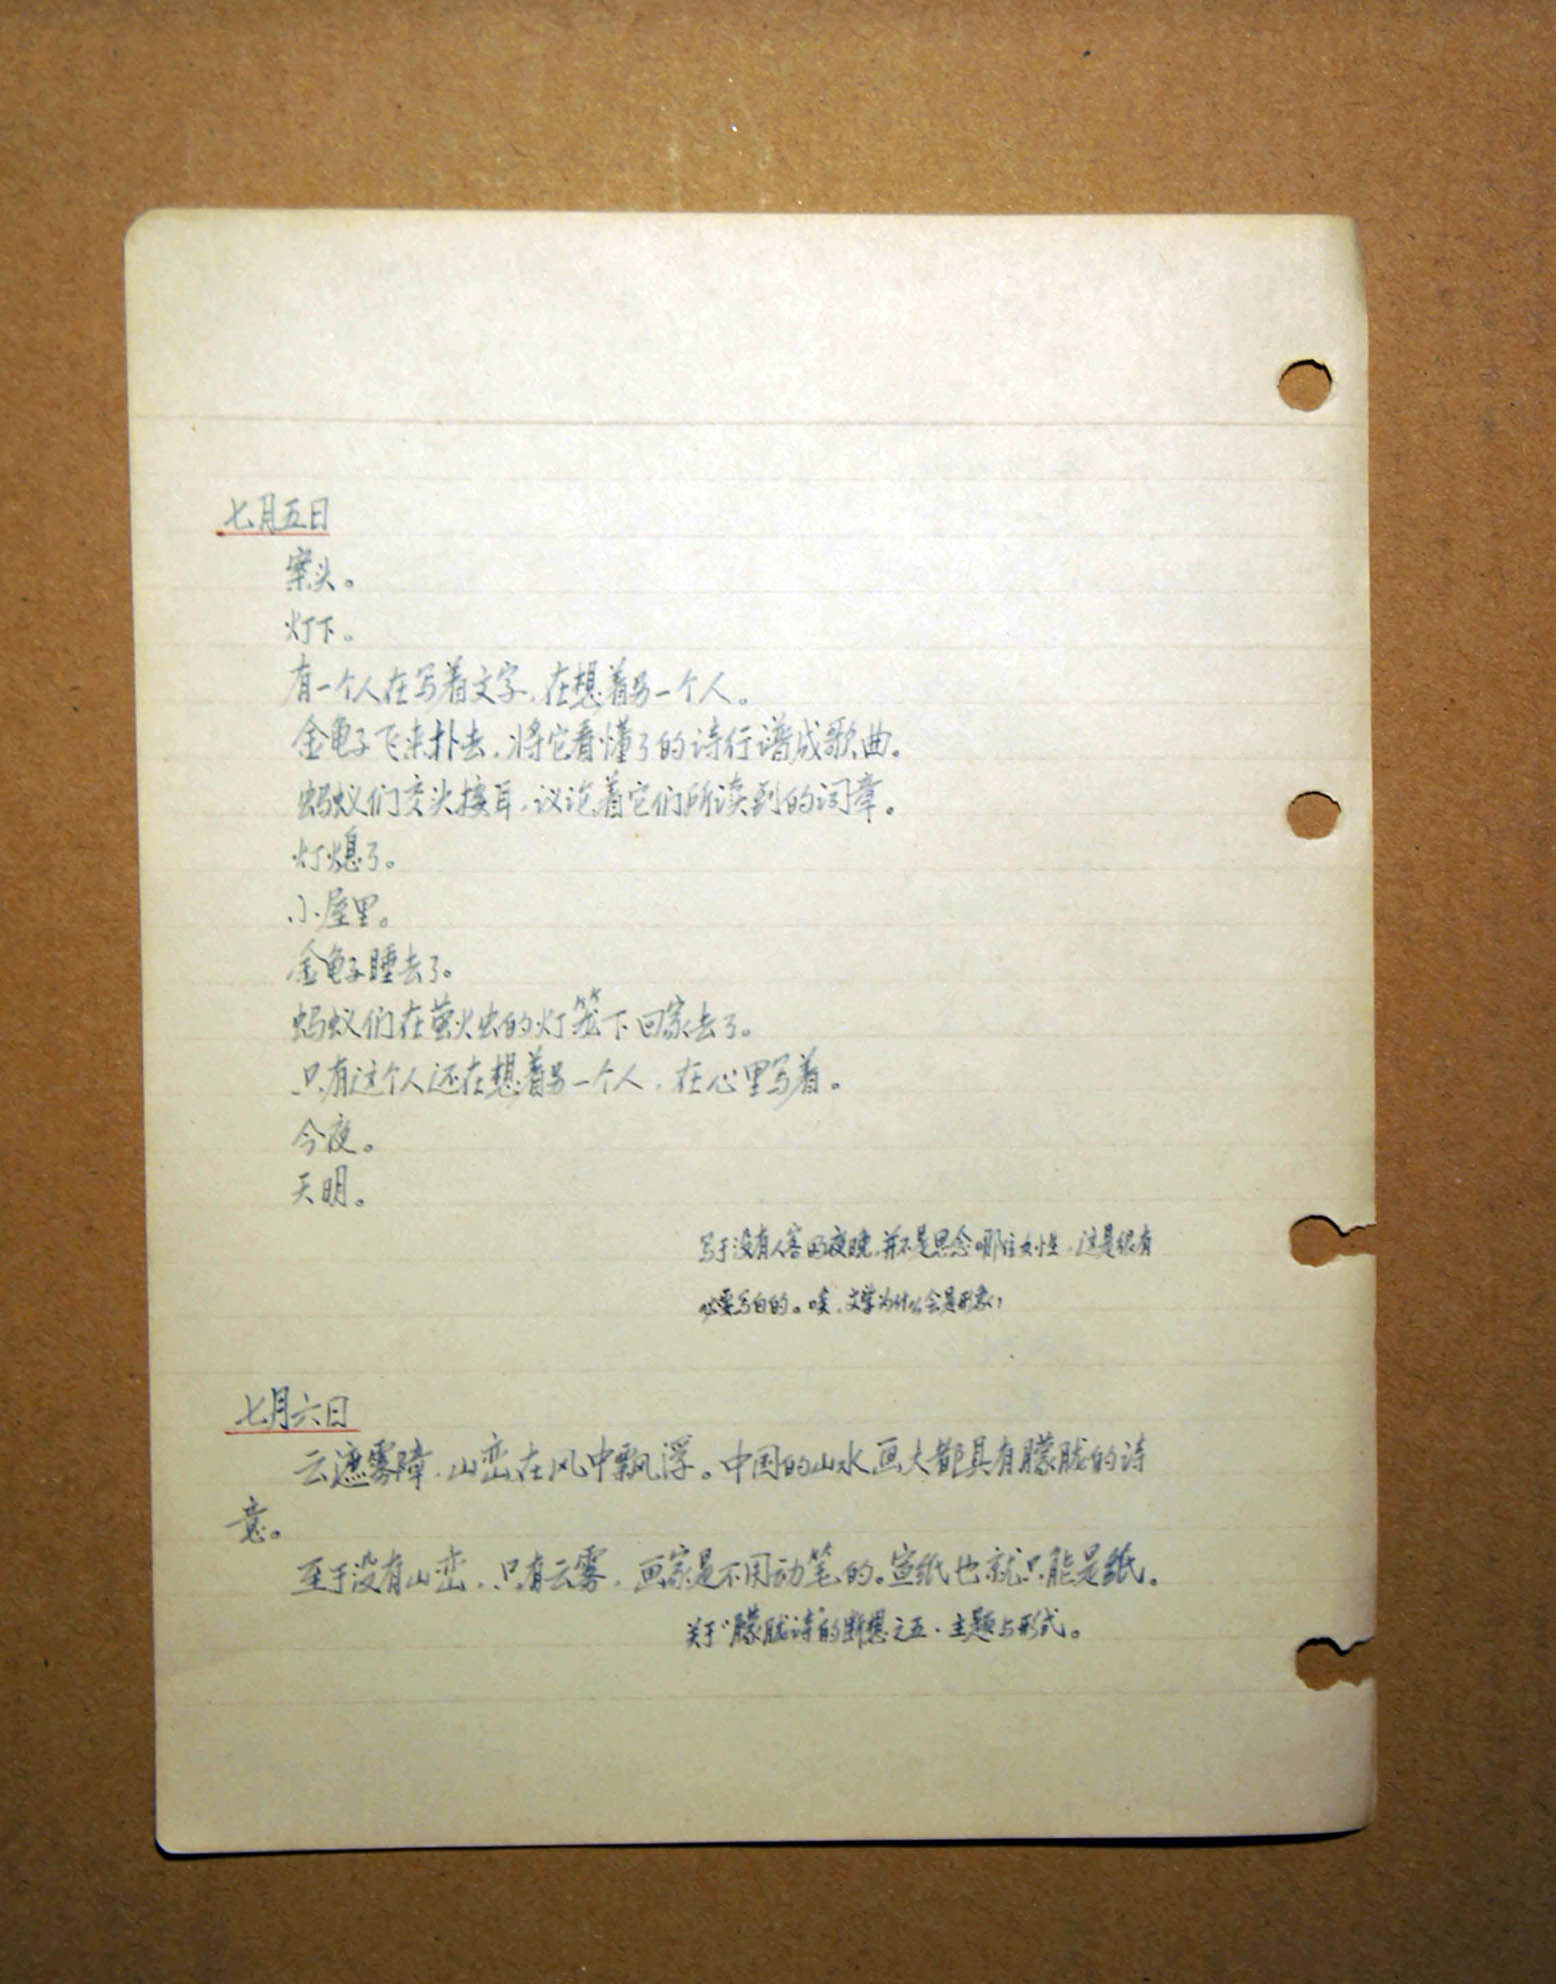 七月五日
案头。
灯下。
有一个人在写着文字，在想着另一个人。
金龟子飞来扑去，将它看懂了的诗行谱成歌曲。
蚂蚁们交头接耳，议论着它们所读到的词章。
灯熄了。
小屋里。
金龟子睡去了。
蚂蚁们在萤火虫的灯笼下回家去了。
只有这个人还在想着另一个人，在心里写着。
今夜。
天明。
写于没有人客的夜晚，并不是思念哪位女性，这是很有
必要写白的。唉，文学为什么会是形象
七月六日
云遮雾障，山峦在风中飘浮。中国的山水画大都具有朦胧的诗
意。
至于没有山峦，只有云雾，画家是不用动笔的。宣纸也就只能是纸。
关于“朦胧诗”的断想之五·主题与形式。